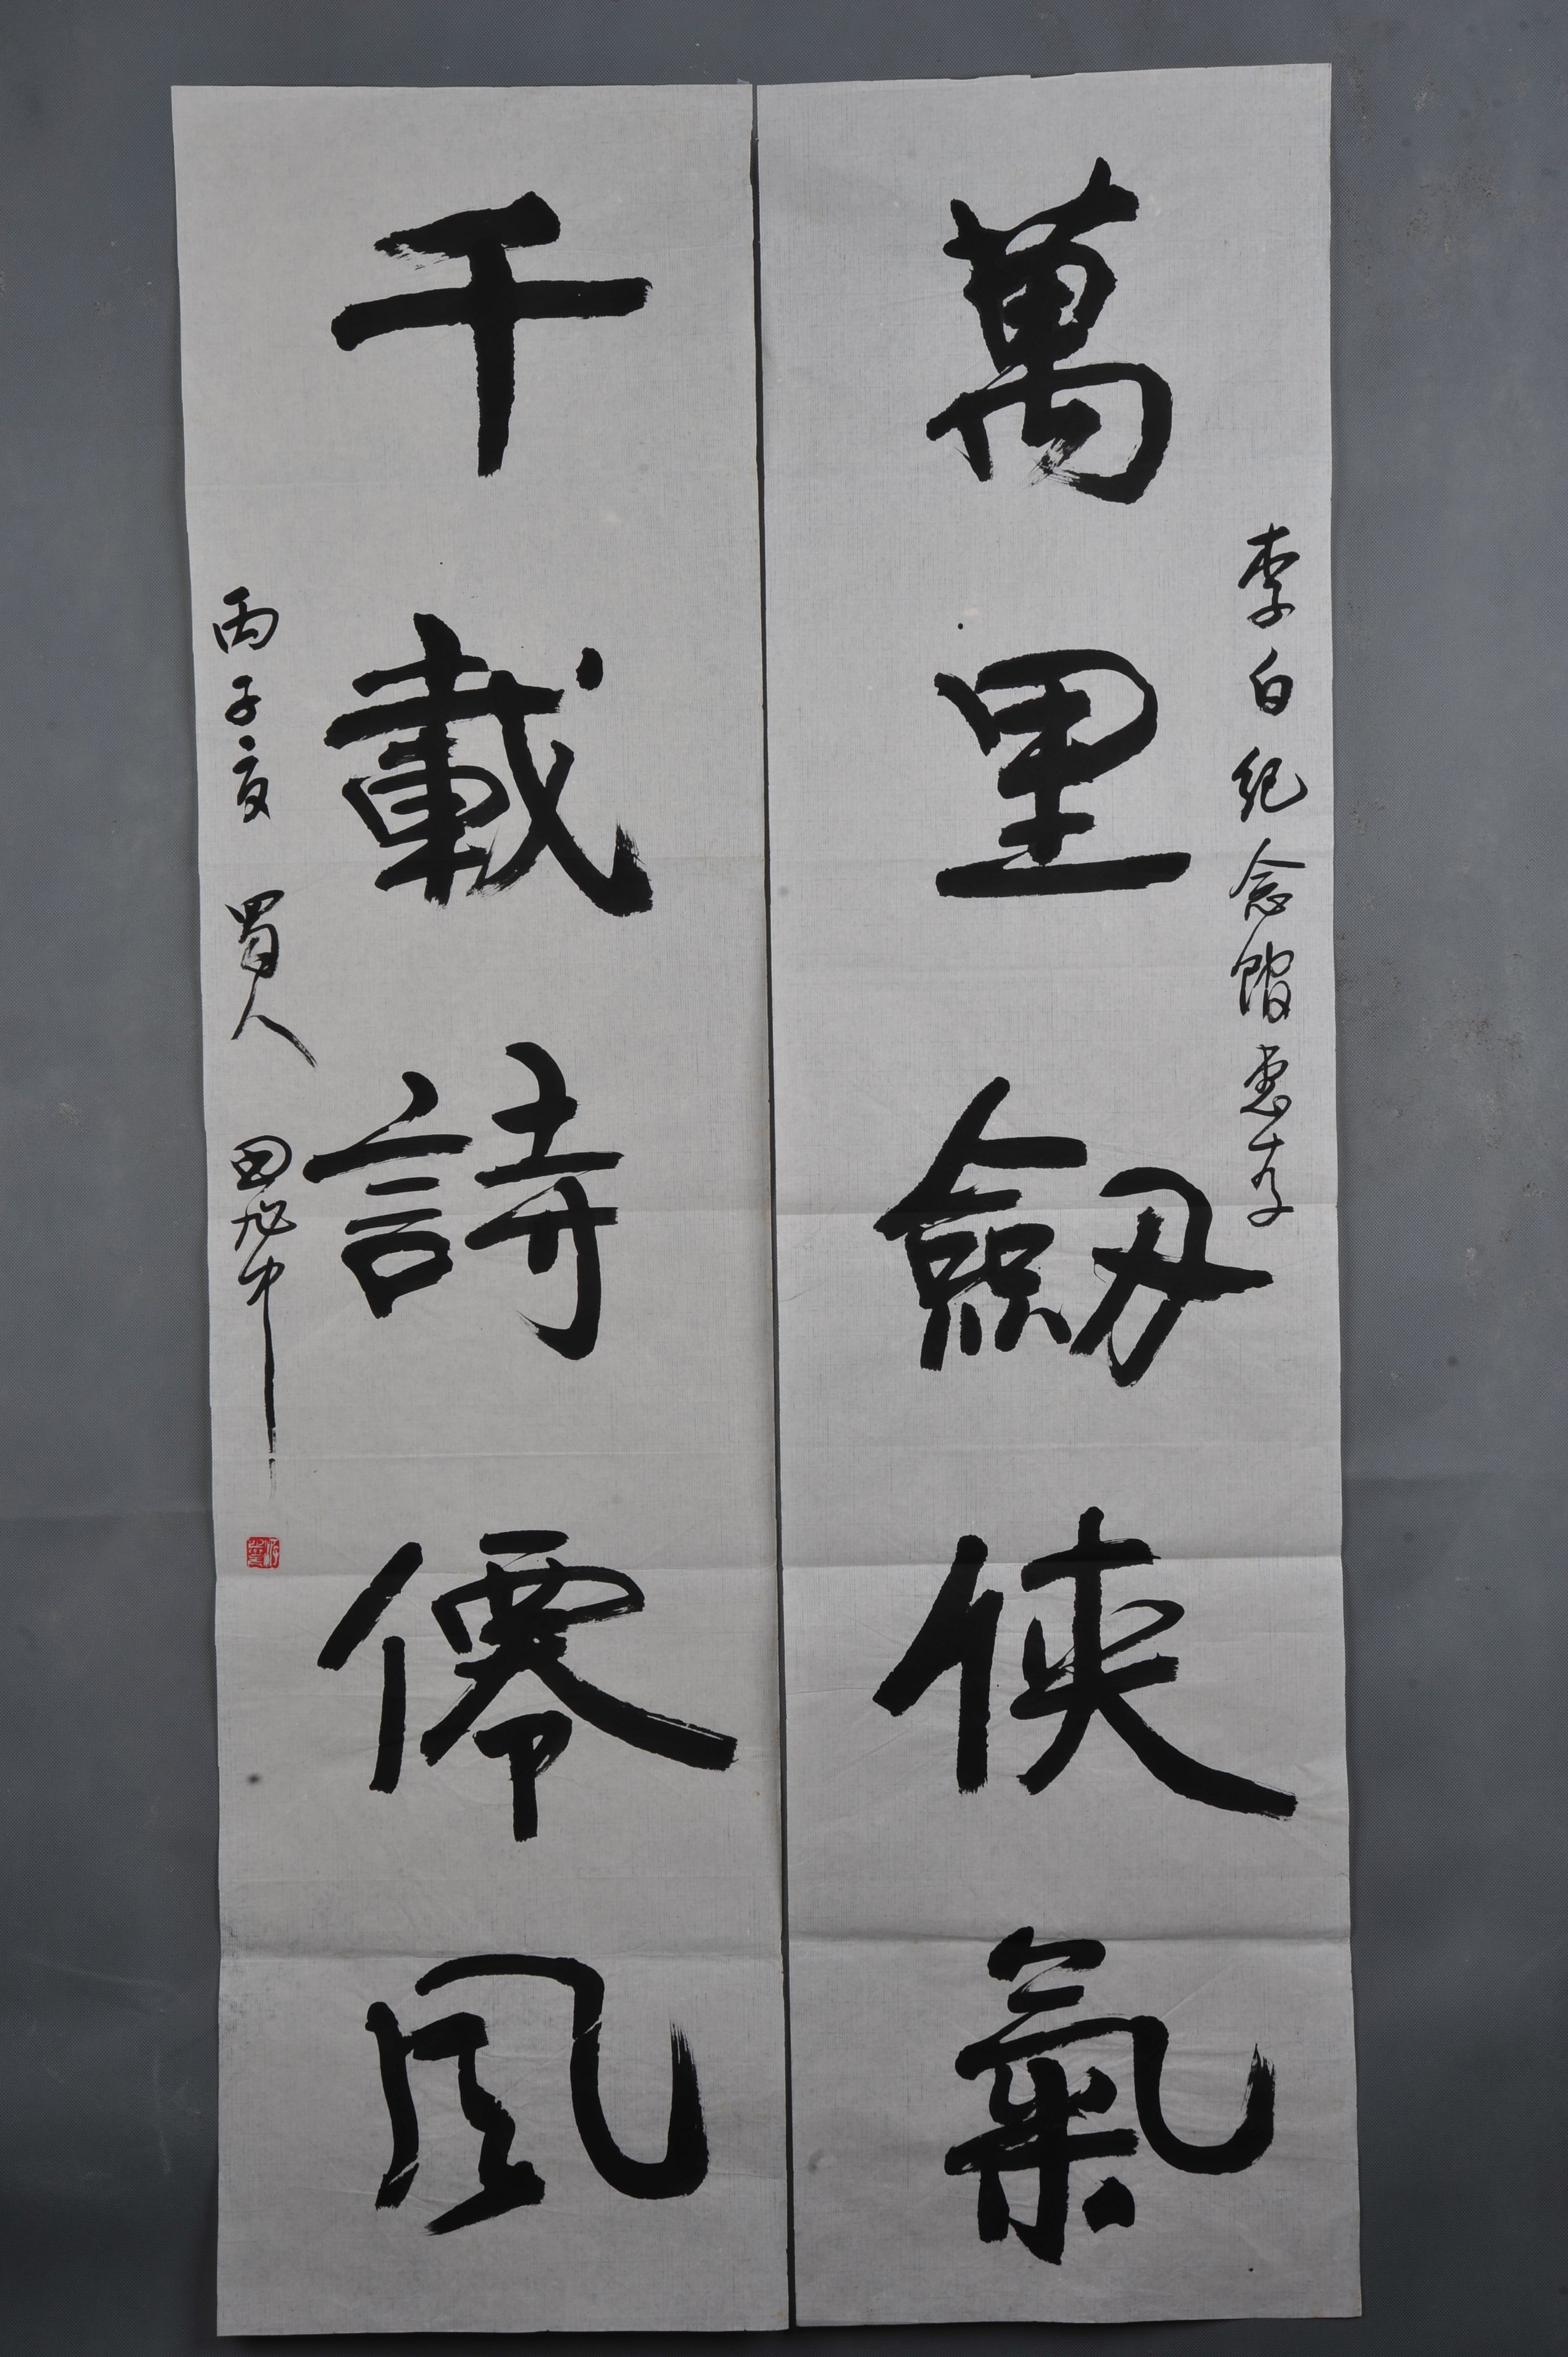 李白纪念馆惠存
萬里劔俠氣
千載詩僊風
丙子夏 蜀人 田旭中